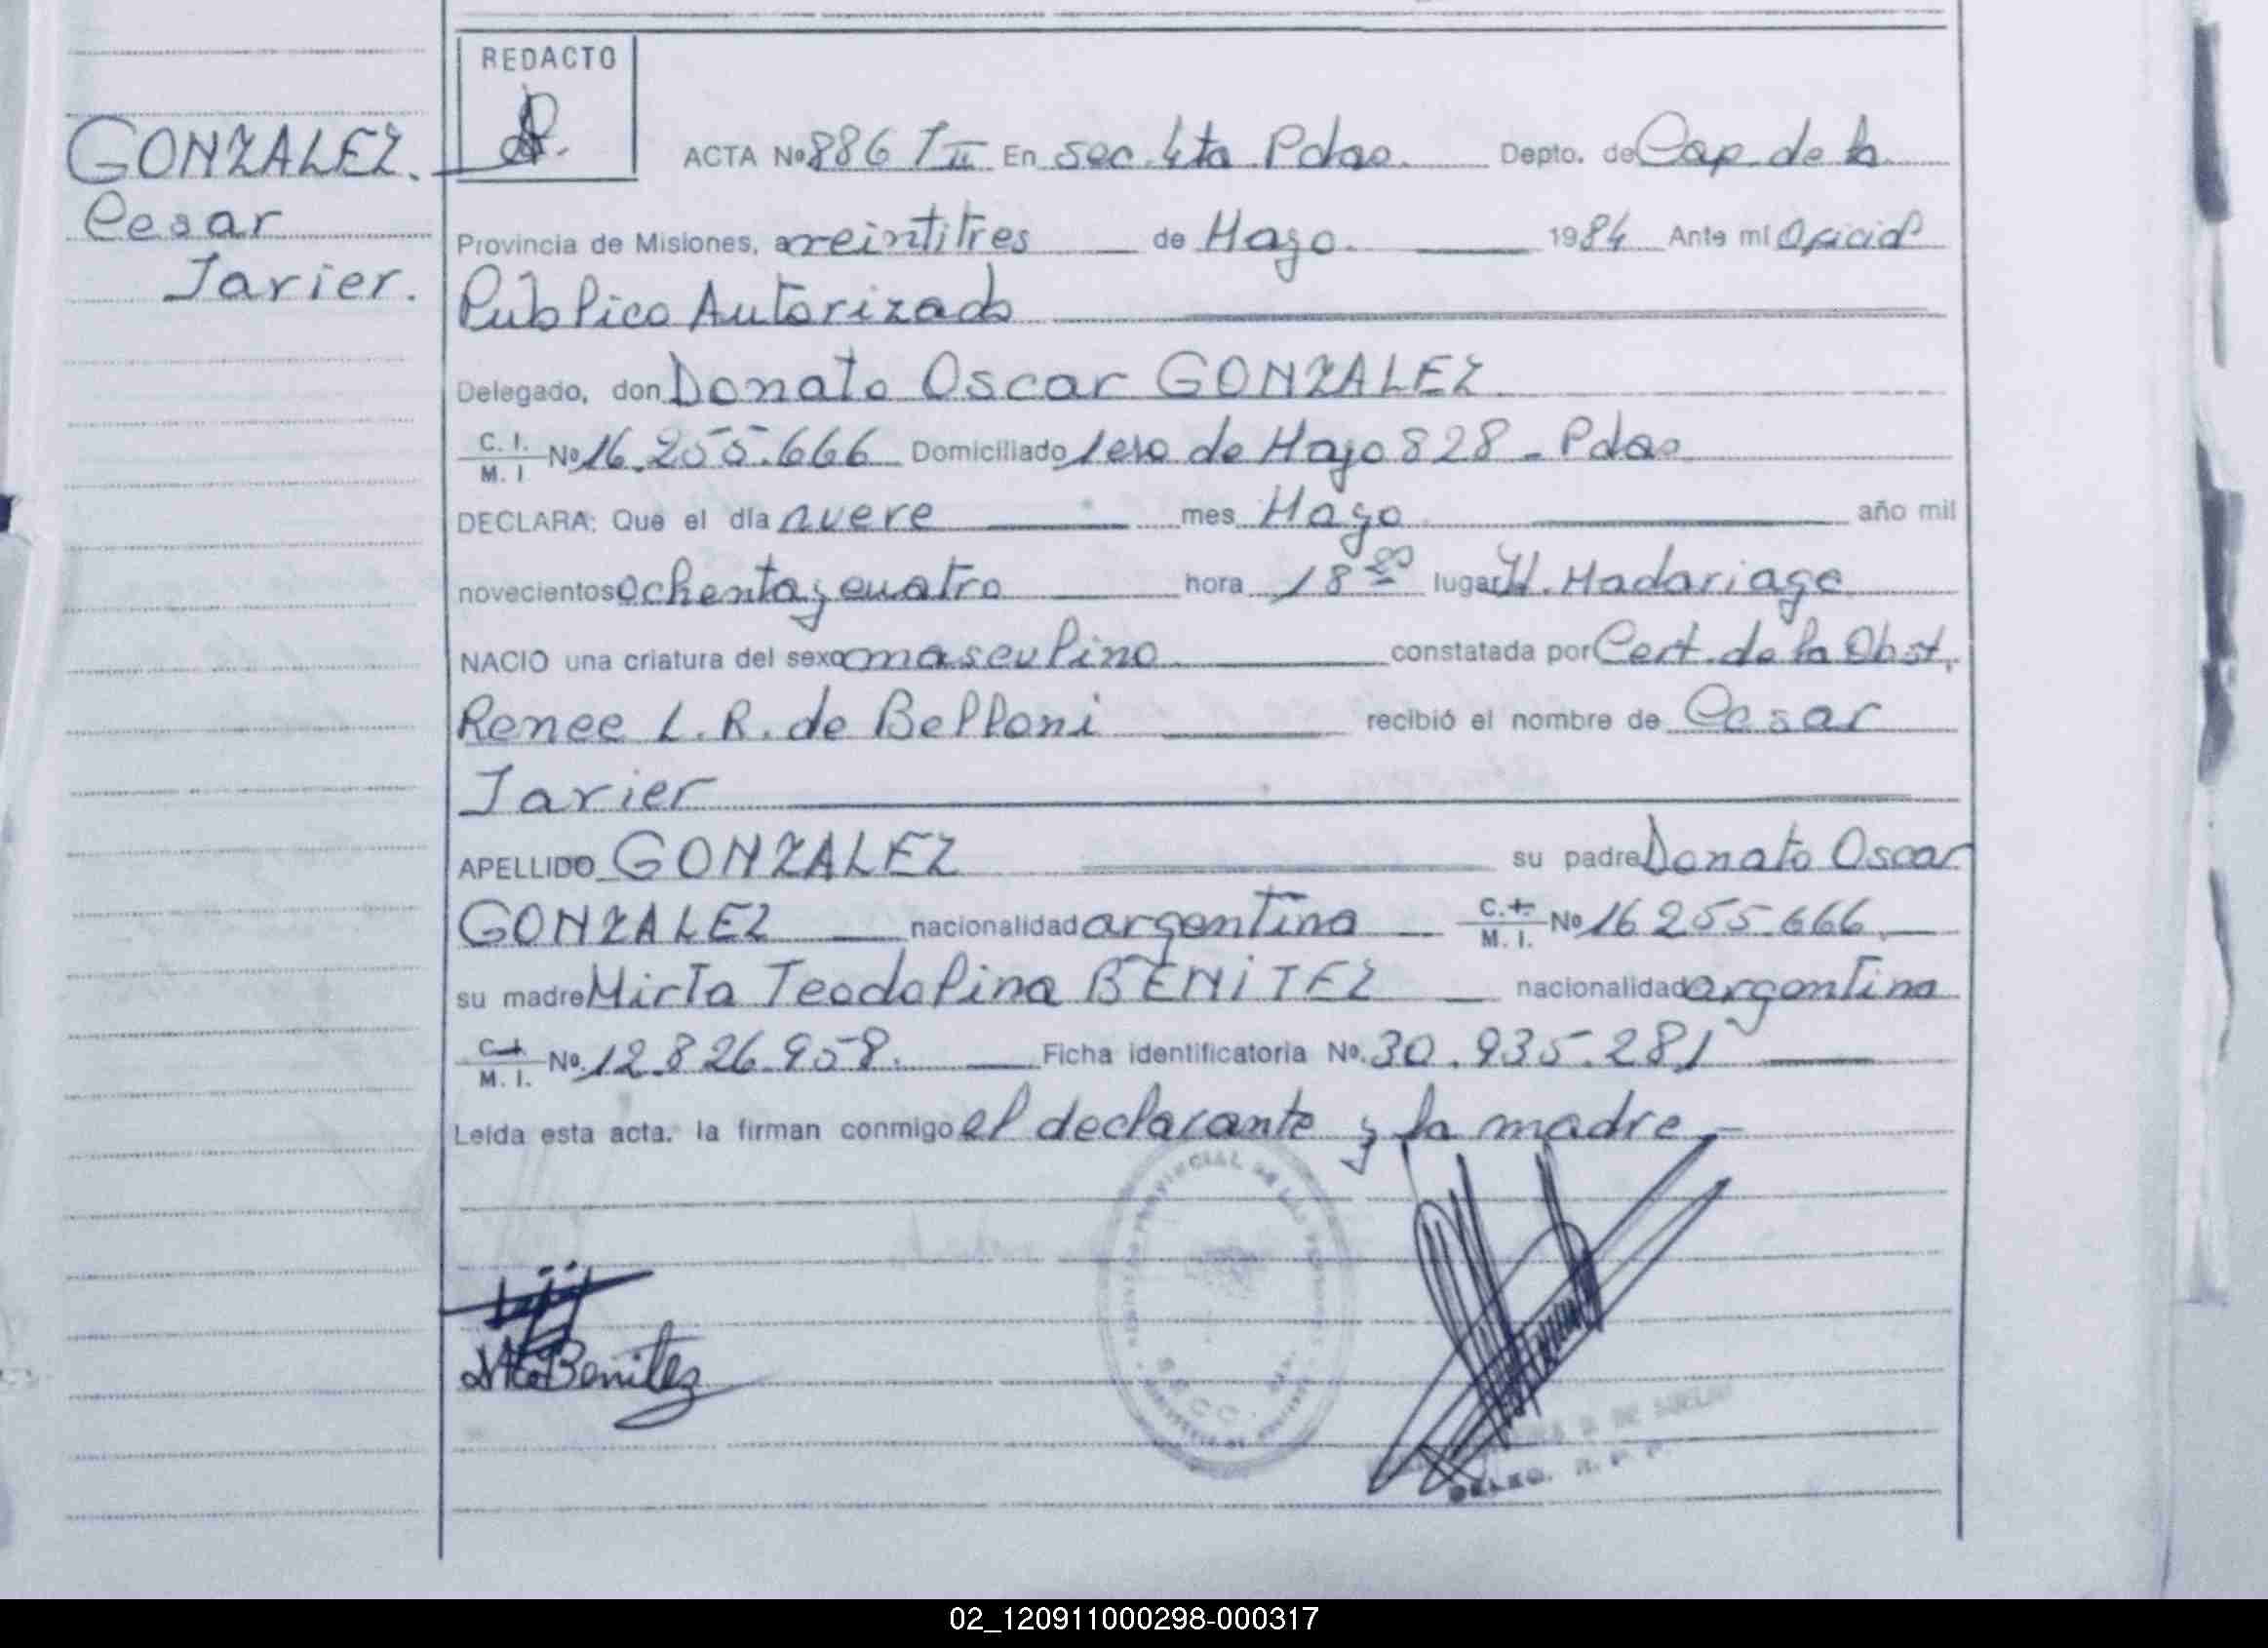 REDACTO
GONZALEZ.
Cesar
Javier.
ACTA Nº 886 T II En sec. 4ta Pdas. Depto. de Cap. de la
Provincia de Misiones, a veintitres de Mayo. 1984 Ante mí Oficial
Público Autorizado
Delegado, don Donato Oscar GONZALEZ
C. I. / M. I. Nº 16.255.666 Domiciliado 1ero de Mayo 828 - Pdas
DECLARA: Que el día nueve mes Mayo año mil
novecientos ochenta y cuatro hora 18 20 lugar H. Madariaga
NACIO una criatura del sexo masculino constatada por Cert. de la Obst.
Renee L. R. de Belloni recibió el nombre de Cesar
Javier
APELLIDO GONZALEZ su padre Donato Oscar
GONZALEZ nacionalidad argentina C. I. / M. I. Nº 16 255.666
su madre Mirta Teodolina BENITEZ nacionalidad argentina
C. I. / M. I. Nº 12.826.958. Ficha identificatoria Nº 30.935.281
Leída esta acta, la firman conmigo el declarante y la madre.-
Benitez
DELEG. R. P. P.
02_120911000298-000317